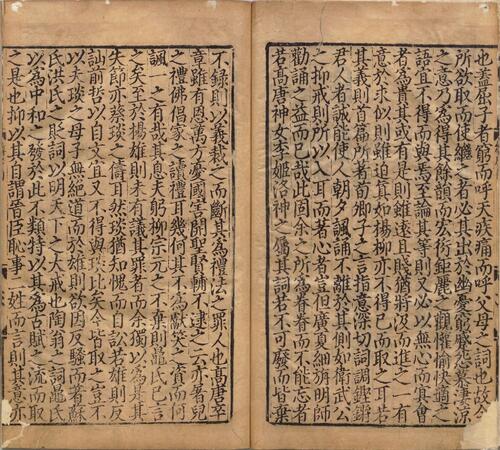 也蓋屈子者窮而呼天疾痛而呼父母之詞也故今
所欲取而使繼之者必其出於幽憂窮蹙怨慕凄涼
之意乃為得其餘韻而宏衍鉅麗之觀懽愉快適之
語宜不得而與焉至論其等則又必以無心而冥會
者為貴其或有是則雖遠且賤猶將汲而進之一有
意於求似則雖迫真如楊柳亦不得已而取之耳若
其義則首篇所著荀卿子之言指意深切詞調鏗鏘
君人者誠能使人朝夕諷誦不離於其側如衛武公
之抑戒則所以入耳而著心者豈但廣厦細旃明師
勸誦之益而已哉此固余之所為眷眷而不能忘者
若高唐神女李姬洛神之屬其詞若不可廢而皆棄
不錄則以義裁之而斷其為禮法之罪人也高唐卒
章雖有思萬方憂國害開聖賢輔不逮之云亦屠兒
之禮佛倡家之讀禮耳幾何其不為獻笑之資而何
諷一之有哉其息夫躬柳宗元之不棄則晁氏已言
之矣至於揚雄則未有議其罪者而余獨以為是其
失節亦蔡琰之儔耳然琰猶知愧而自訟若雄則反
訕前哲以自文宜又不得與琰比矣今皆取之豈不
以夫琰之母子無絕道而於雄則欲因反騷而著蘇
氏洪氏之貶詞以明天下之大戒也陶翁之詞晁氏
以為中和之發於此不類特以其為古賦之流而取
之是也抑以其自謂晉臣恥事二姓而言則其意亦